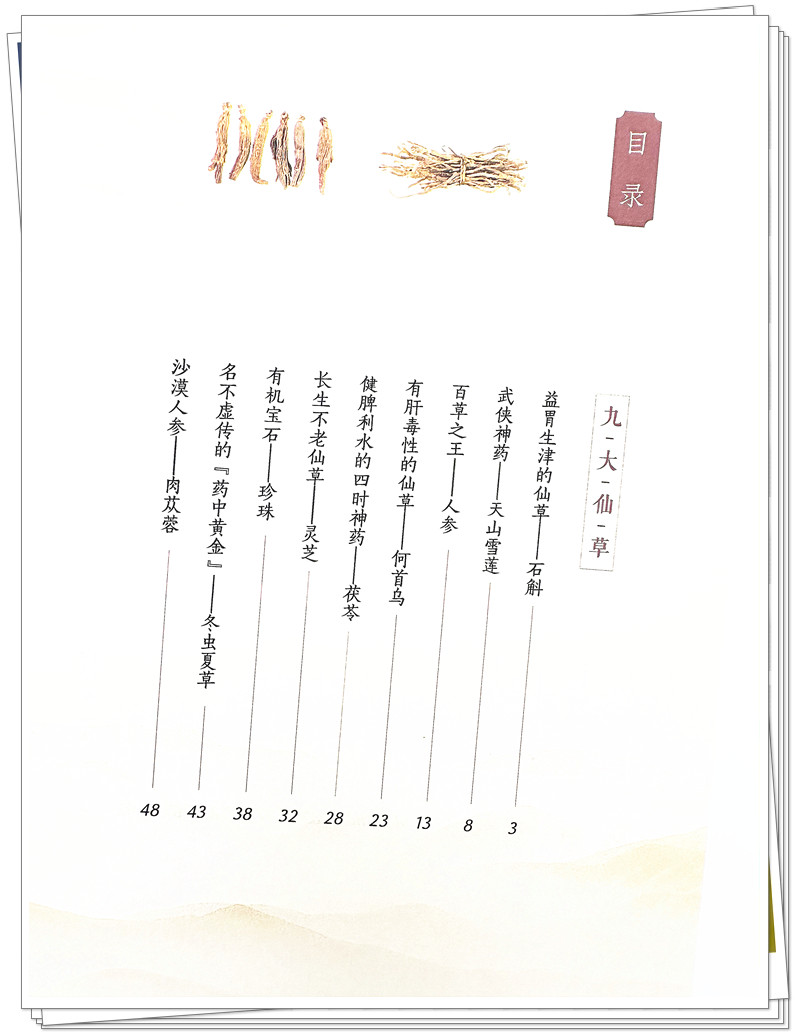 目录
九-大-仙-草
益胃生津的仙草——石斛 3
武侠神药——天山雪莲 8
百草之王——人参 13
有肝毒性的仙草——何首乌 23
健脾利水的四时神药——茯苓 28
长生不老仙草——灵芝 32
有机宝石——珍珠 38
名不虚传的『药中黄金』——冬虫夏草 43
沙漠人参——肉苁蓉 48